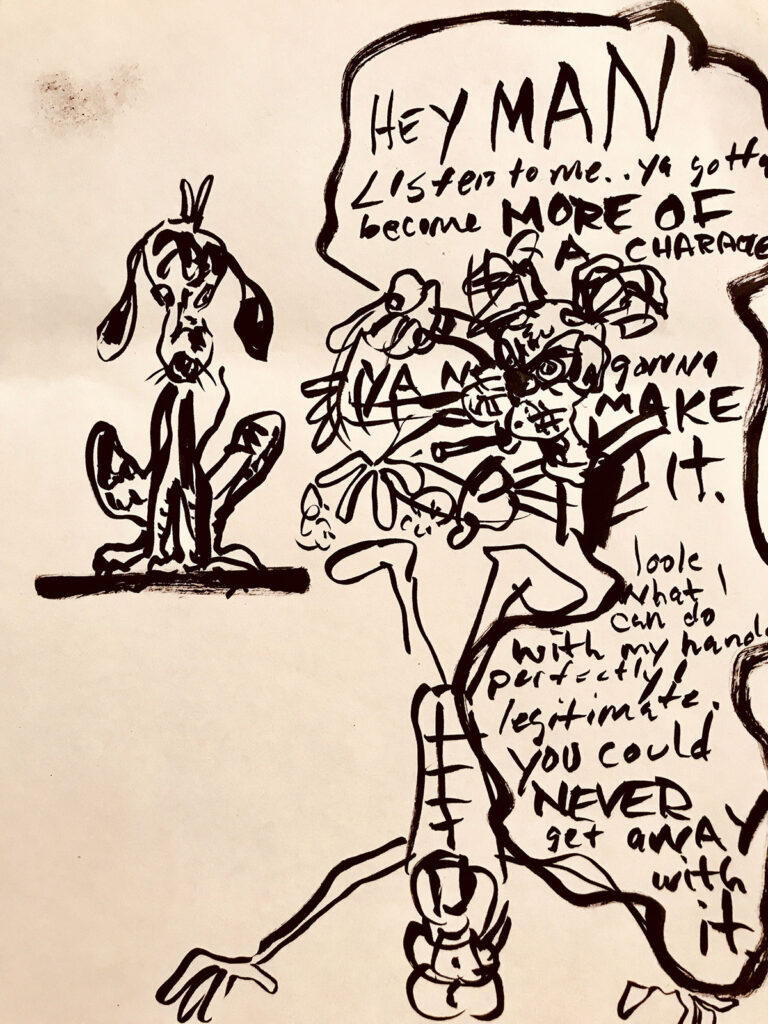 HEY MAN
Listen to me.. ya gotta
become MORE OF
A CHARACTE
gonna
MAKE
IT.
look
what I
can do
with my hand
perfectly
legitimate.
YOU could
NEVER
get aWAY
with
it